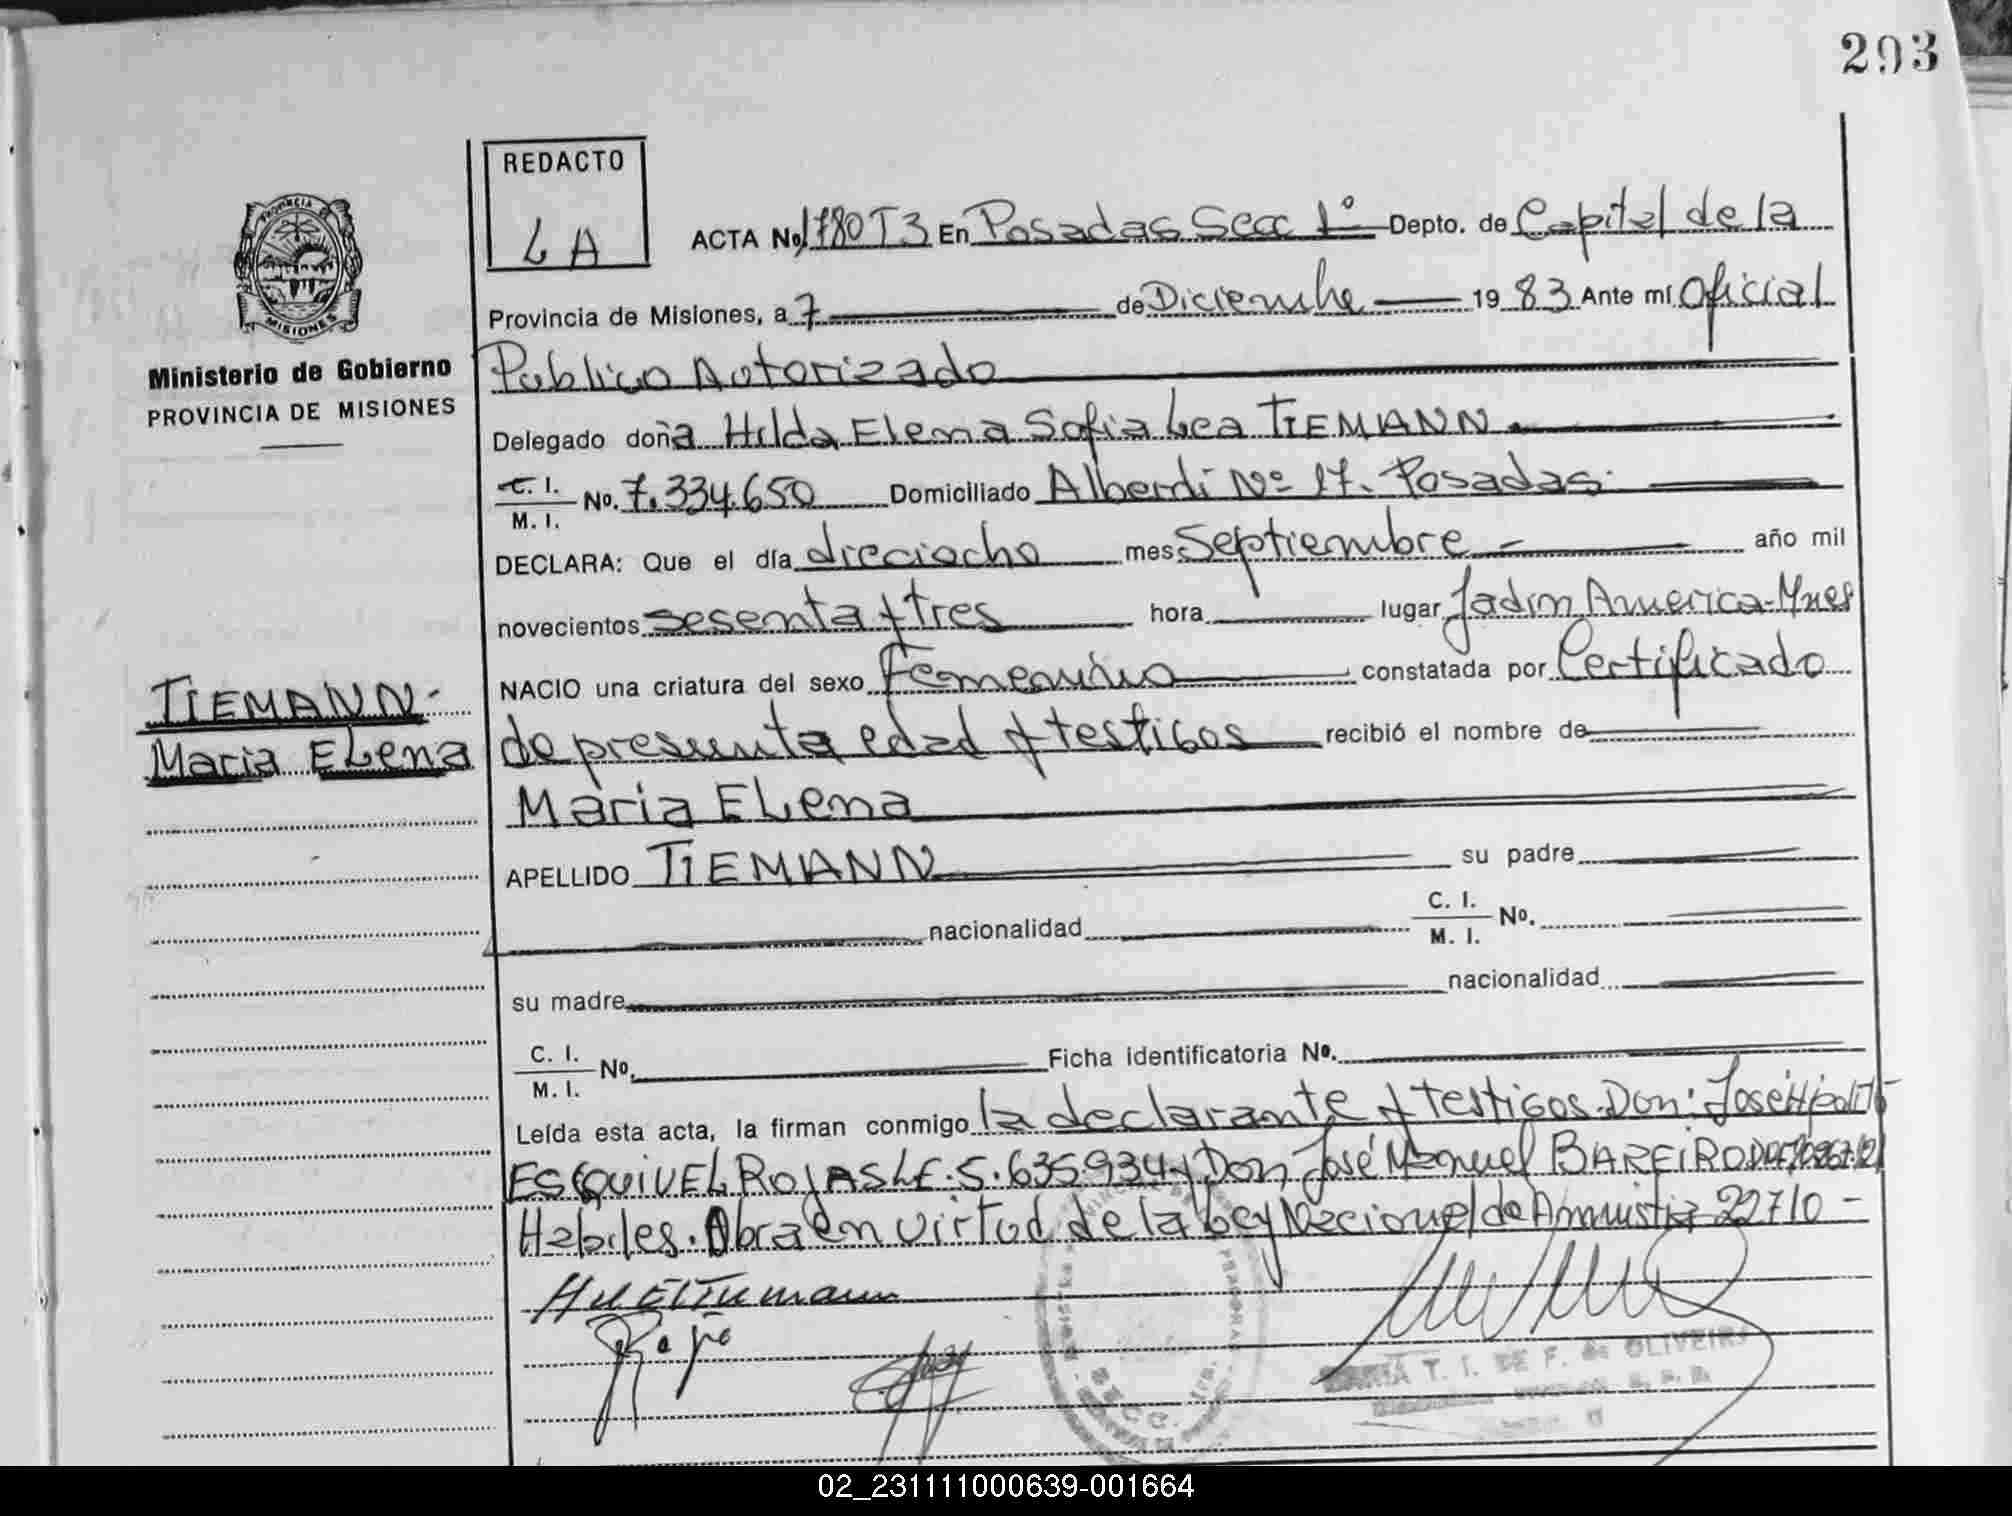 293
REDACTO
LA
PROVINCIA DE
MISIONES
Ministerio de Gobierno
PROVINCIA DE MISIONES
ACTA No 1780 T3 En Posadas Secc 1º Depto. de Capital de la
Provincia de Misiones, a 7 de Diciembre 19 83 Ante mí Oficial
Publico Autorizado
Delegado doña Hilda Elena Sofia Lea TIEMANN
C. I.
M. I. No. 7.334.650 Domiciliado Alberdi Nº 17. Posadas.
DECLARA: Que el día dieciocho mes Septiembre - año mil
novecientos sesenta y tres hora lugar Jadin America-Mnes
NACIO una criatura del sexo Femenino constatada por Certificado
de presunta edad y testigos recibió el nombre de
Maria ELena
TIEMANN-
Maria ELena
APELLIDO TIEMANN su padre
nacionalidad C. I.
M. I. No.
su madre nacionalidad
C. I.
M. I. No. Ficha identificatoria No.
Leída esta acta, la firman conmigo la declarante y testigos. Don: José Hipolito
ESQUIVEL ROJAS LE. 5.635934 y Don José Manuel BAREIRO
Habiles. Obra en virtud de la Ley Nacional de Amnistia 22710 -
Tiemann
Rojas
SECC.
MARIA T. I. DE F. de OLIVEIRA
02_231111000639-001664